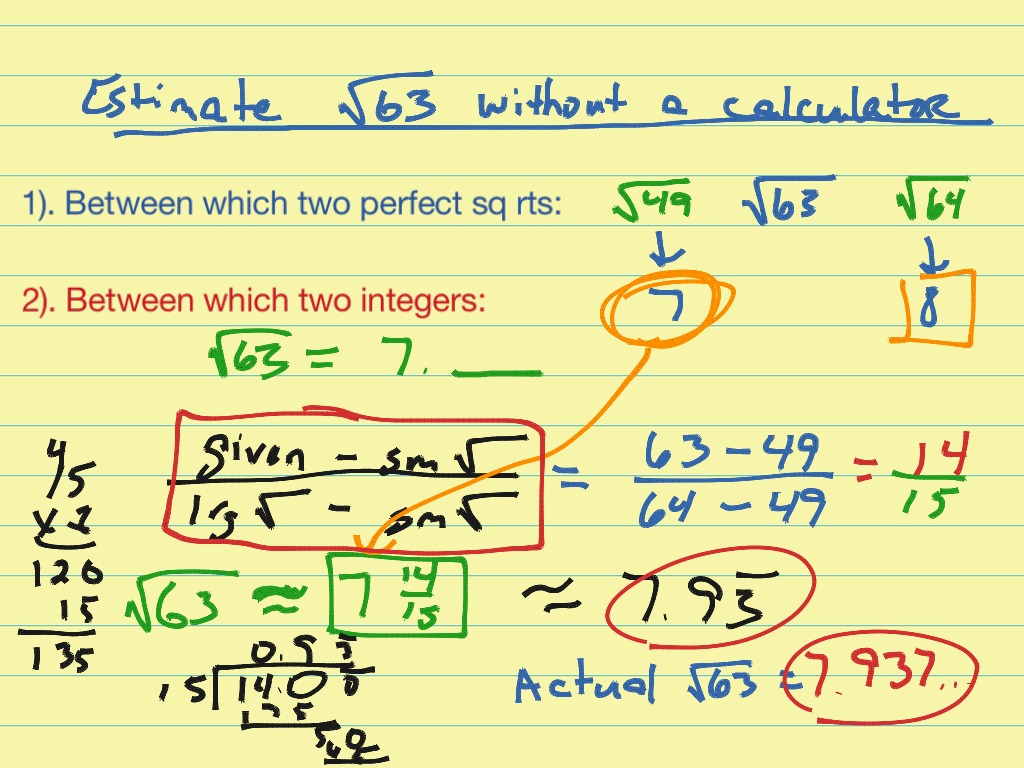 Estimate √63 without a calculator
1). Between which two perfect sq rts: √49 √63 √64
2). Between which two integers: 7 8
√63 = 7. ___
given - sm√ / lrg√ - sm√ = 63 - 49 / 64 - 49 = 14 / 15
√63 ≈ 7 14/15 ≈ 7.93̅
Actual √63 = 7.937...
120
15
135
0.93̅
15 14.00
135